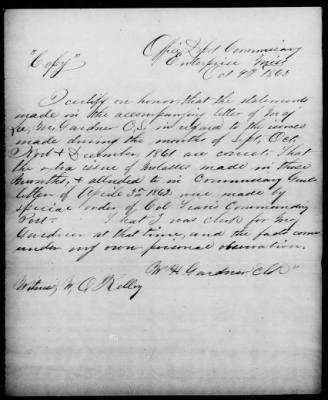 Office Depot Commissary
"Copy" Enterprise Miss
Oct 9th 1863
I certify on honor, that the statements
made in the accompanying letter of Maj
Gardner C.S. in regard to the issues
made during the months of Sept, Oct,
Nov & December, 1861 are correct. That
the extra issue of molasses made in those
months, alluded to in Commissary Genl
letter of April 3d 1862 was made by
special order of Col Commanding
Post. That I was clerk for Maj
Gardner at that time, and the facts came
under my own personal observation.
Wm H Gardner Clk
Witness, W. O. Kelley